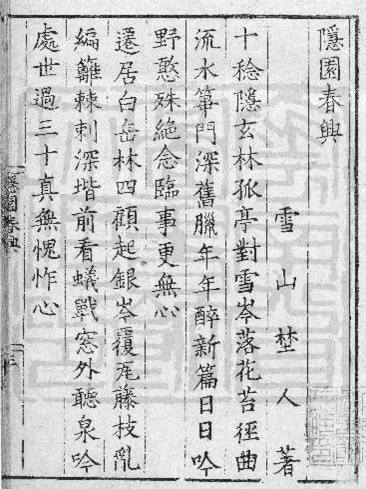 隱園春興
雪山埜人著
十稔隱玄林孤亭對雪岑落花苔徑曲
流水筸門深舊臘年年醉新篇日日吟
野憨殊絶念臨事更無心
遷居白岳林四顧起銀岑覆瓦藤枝亂
編籬棘刺深堦前看蟻戰窓外聽泉吟
處世過三十真無愧怍心
隱園春興